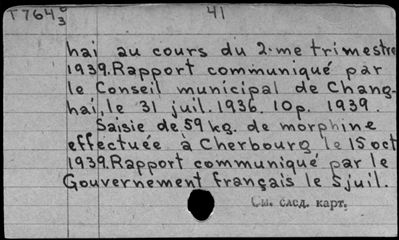 T7640/3 41
hai au cours du 2-me trimestre
1939. Rapport communiqué par
le Conseil municipal de Chang-
hai, le 31 juil. 1936. 10p. 1939.
Saisie de 59 kg. de morphine
effectuée à Cherbourg le 15 oct
1939. Rapport communiqué par le
Gouvernement français le 5 juil.
См. след. карт.